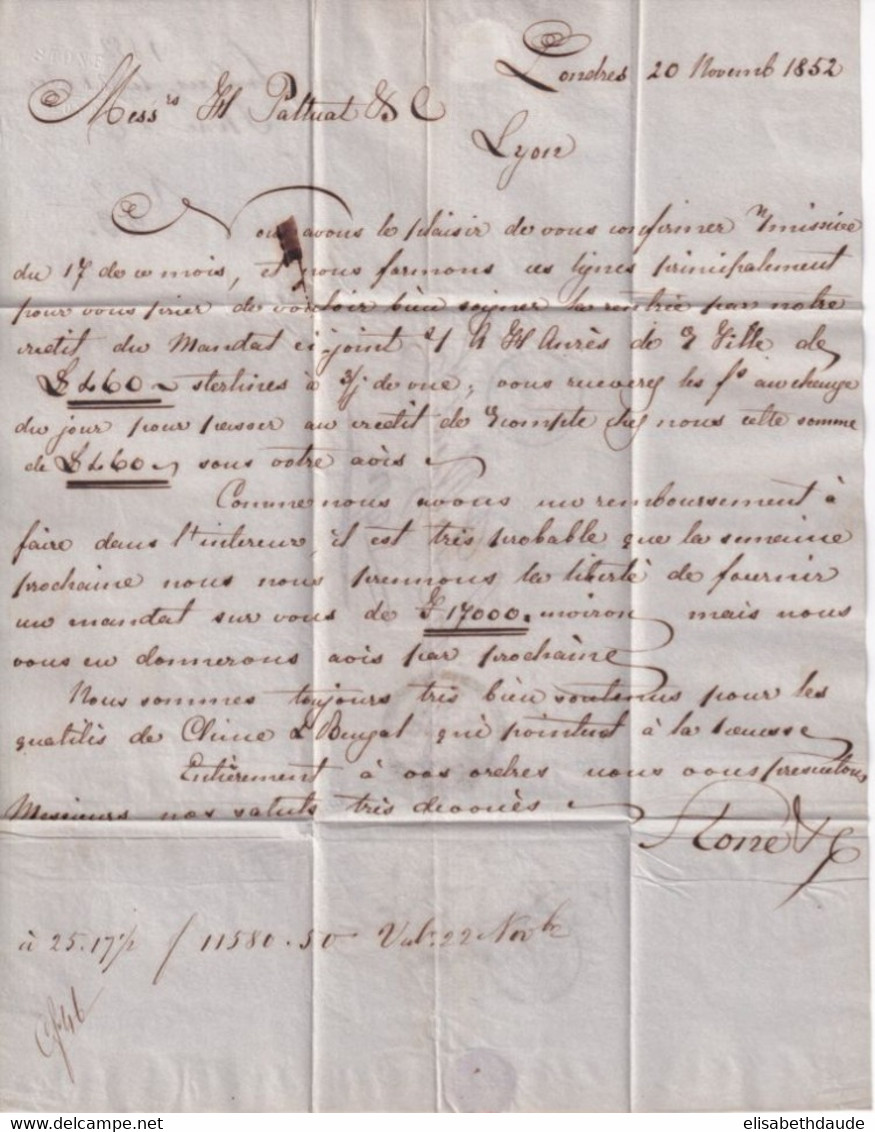 STONE
Londres 20 Novemb 1852
Mess.rs H Paltuat & C
Lyon
Nous avons le plaisir de vous confirmer n/missive
du 17 de ce mois, et nous formons ces lignes principalement
pour vous prier de vouloir bièn soigner la rentrée par notre
credit du Mandat ci-joint s/ A H Aurès de v Ville de
£ 460 sterlines à 3/j de vue; vous recevrez les f.s au change
du jour pour passer au credit de v compte chez nous cette somme
de £ 460 sous votre avis
Comme nous avons un remboursement à
faire dans l'interieur, il est tris probable que la semaine
prochaine nous nous prennons la liberté de fournir
un mandat sur vous de 17000. environ mais nous
vous en donnerons avis par prochaine
Nous sommes toujours tris bièn soutenus pour les
qualitis de Chine & Bengal qui pointent à la hausse
Entièrement à vos ordres nous vous presentons
Messieurs nos saluts tris devouès
Stone & C
à 25.17½ f 11580.50 Val. 22 Novb
elisabethdaude